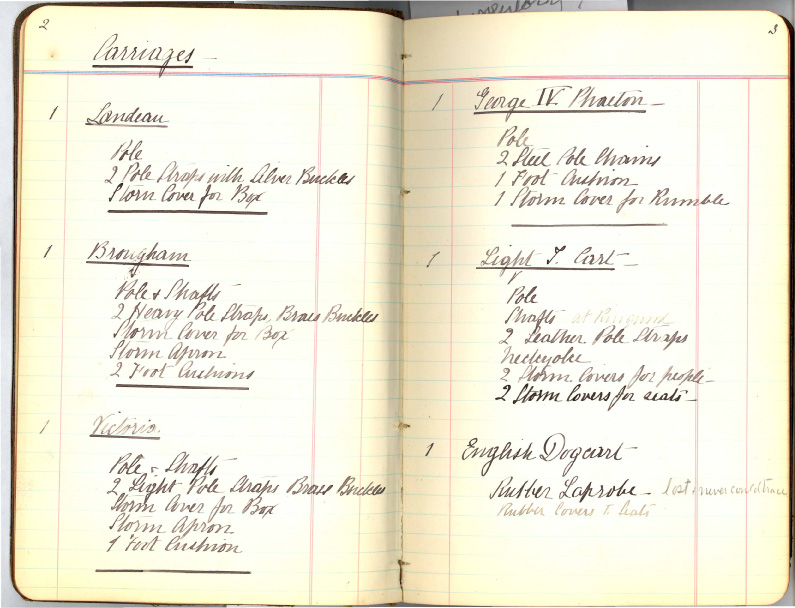 2
Carriages —
1 Landeau
Pole
2 Pole Straps with Silver Buckles
Storm Cover for Box
1 Brougham
Pole & Shafts
2 Heavy Pole Straps, Brass Buckles
Storm Cover for Box
Storm Apron
2 Foot Cushions
1 Victoria.
Pole & Shafts
2 Light Pole Straps Brass Buckles
Storm Cover for Box
Storm Apron
1 Foot Cushion
Inventory
3
1 George IV. Phaeton —
Pole
2 Steel Pole Chains
1 Foot Cushion
1 Storm Cover for Rumble
1 Light T. Cart —
Pole
Shafts at
2 Leather Pole Straps
Neckyoke
2 Storm Covers for people —
2 Storm Covers for seats —
1 English Dogcart
Rubber Laprobe — lost & never could trace
Rubber Covers to Seats